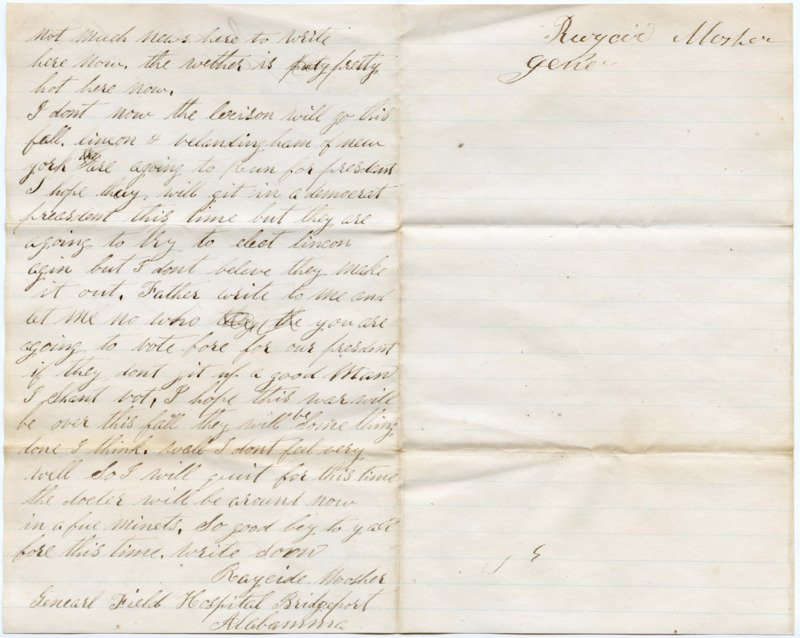 not much news here to write
here now. the wether is pretty
hot here now.
I dont now the lecison will go this
fall. lincon & velandingham of new
york are agoing to Run for presdant
I hope they will git in a democrat
preasdent this time but they are
agoing to try to elect lincon
agin but I dont beleve they make
it out. Father write to me and
let me no who you are
agoing to vote fore for our presdent
if they dont git up a good Man
I shant vot, I hope this war will
be over this fall they will be Some thing
done I think. wall I dont feel very
well So I will quit for this time
the docter will be around now
in a fue minets. So good by to yall
fore this time. write soon
Raycide Mosher
Genearl Field Hospital Bridgeport
Alabamma
Mosher